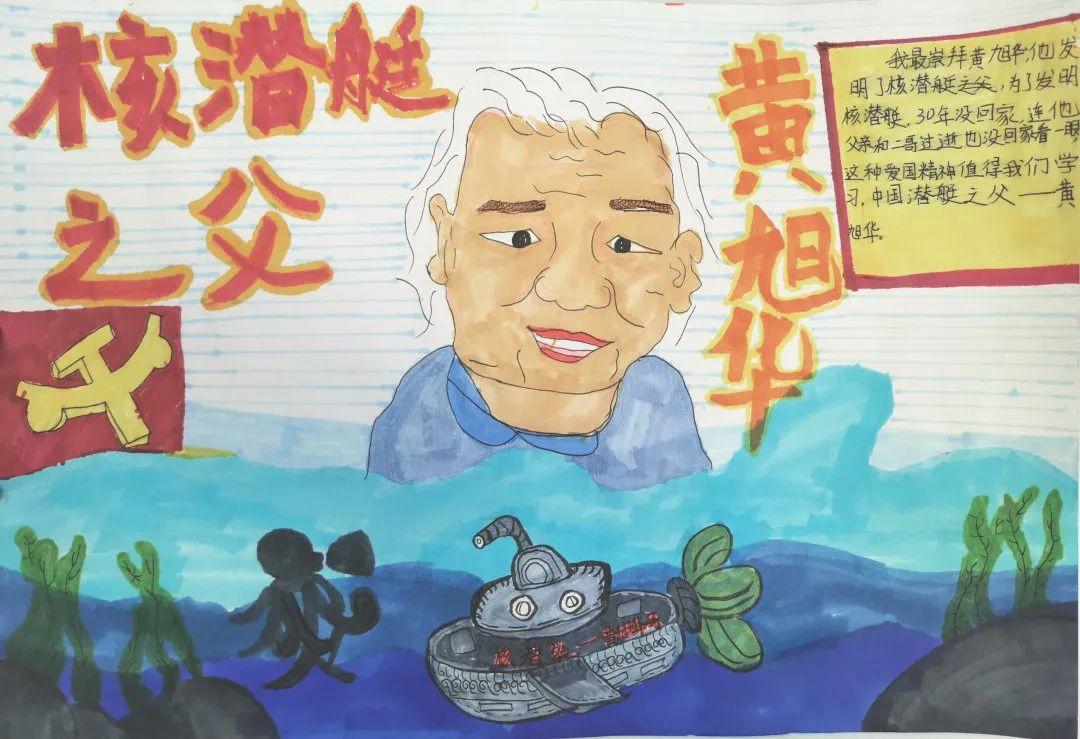 核潜艇
之父
黄旭华
我最崇拜黄旭华,他发
明了核潜艇之父,为了发明
核潜艇,30年没回家,连他
父亲和二哥过逝也没回家看一眼
这种爱国精神值得我们学
习,中国潜艇之父——黄
旭华。
核潜艇